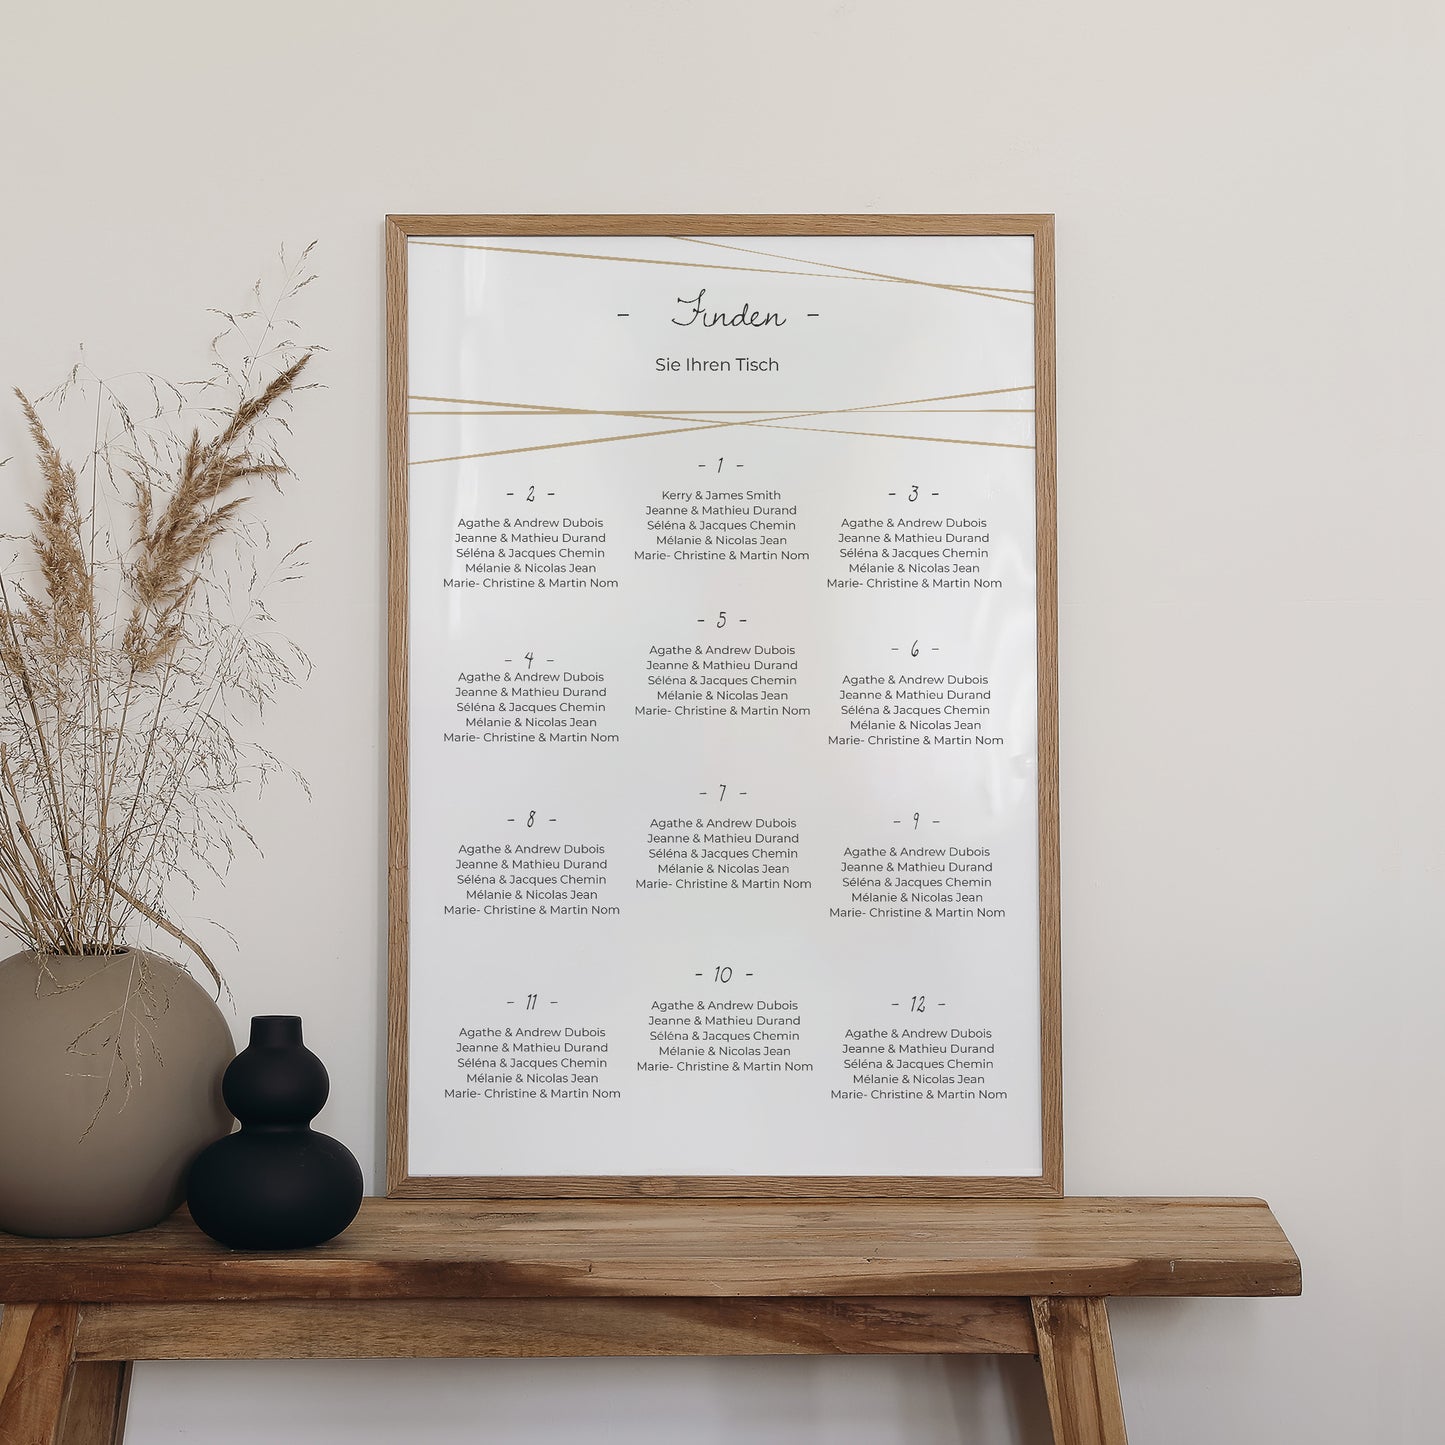 - Finden -
Sie Ihren Tisch
- 1 -
Kerry & James Smith
Jeanne & Mathieu Durand
Séléna & Jacques Chemin
Mélanie & Nicolas Jean
Marie- Christine & Martin Nom
- 2 -
Agathe & Andrew Dubois
Jeanne & Mathieu Durand
Séléna & Jacques Chemin
Mélanie & Nicolas Jean
Marie- Christine & Martin Nom
- 3 -
Agathe & Andrew Dubois
Jeanne & Mathieu Durand
Séléna & Jacques Chemin
Mélanie & Nicolas Jean
Marie- Christine & Martin Nom
- 4 -
Agathe & Andrew Dubois
Jeanne & Mathieu Durand
Séléna & Jacques Chemin
Mélanie & Nicolas Jean
Marie- Christine & Martin Nom
- 5 -
Agathe & Andrew Dubois
Jeanne & Mathieu Durand
Séléna & Jacques Chemin
Mélanie & Nicolas Jean
Marie- Christine & Martin Nom
- 6 -
Agathe & Andrew Dubois
Jeanne & Mathieu Durand
Séléna & Jacques Chemin
Mélanie & Nicolas Jean
Marie- Christine & Martin Nom
- 8 -
Agathe & Andrew Dubois
Jeanne & Mathieu Durand
Séléna & Jacques Chemin
Mélanie & Nicolas Jean
Marie- Christine & Martin Nom
- 7 -
Agathe & Andrew Dubois
Jeanne & Mathieu Durand
Séléna & Jacques Chemin
Mélanie & Nicolas Jean
Marie- Christine & Martin Nom
- 9 -
Agathe & Andrew Dubois
Jeanne & Mathieu Durand
Séléna & Jacques Chemin
Mélanie & Nicolas Jean
Marie- Christine & Martin Nom
- 11 -
Agathe & Andrew Dubois
Jeanne & Mathieu Durand
Séléna & Jacques Chemin
Mélanie & Nicolas Jean
Marie- Christine & Martin Nom
- 10 -
Agathe & Andrew Dubois
Jeanne & Mathieu Durand
Séléna & Jacques Chemin
Mélanie & Nicolas Jean
Marie- Christine & Martin Nom
- 12 -
Agathe & Andrew Dubois
Jeanne & Mathieu Durand
Séléna & Jacques Chemin
Mélanie & Nicolas Jean
Marie- Christine & Martin Nom